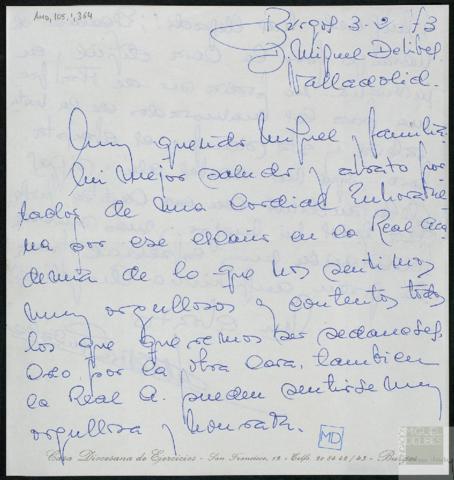 AMD, 105, 1, 364
Burgos 3-2-73
D. Miguel Delibes
Valladolid.
Muy querido Miguel y familia:
Mi mejor saludo y abrazo por-
tador de una cordial Enhorabue-
na por ese escaño en la Real Aca-
demia de lo que nos sentimos
muy orgullosos y contentos todos
los que queremos ser sedaneses.
Creo por la otra cara, tambien
la Real A. pueden sentirse muy
orgullosa y honrada.
MD
Casa Diocesana de Ejercicios - San Francisco, - Telfs. - Burgos
MIGUEL
DELIBES